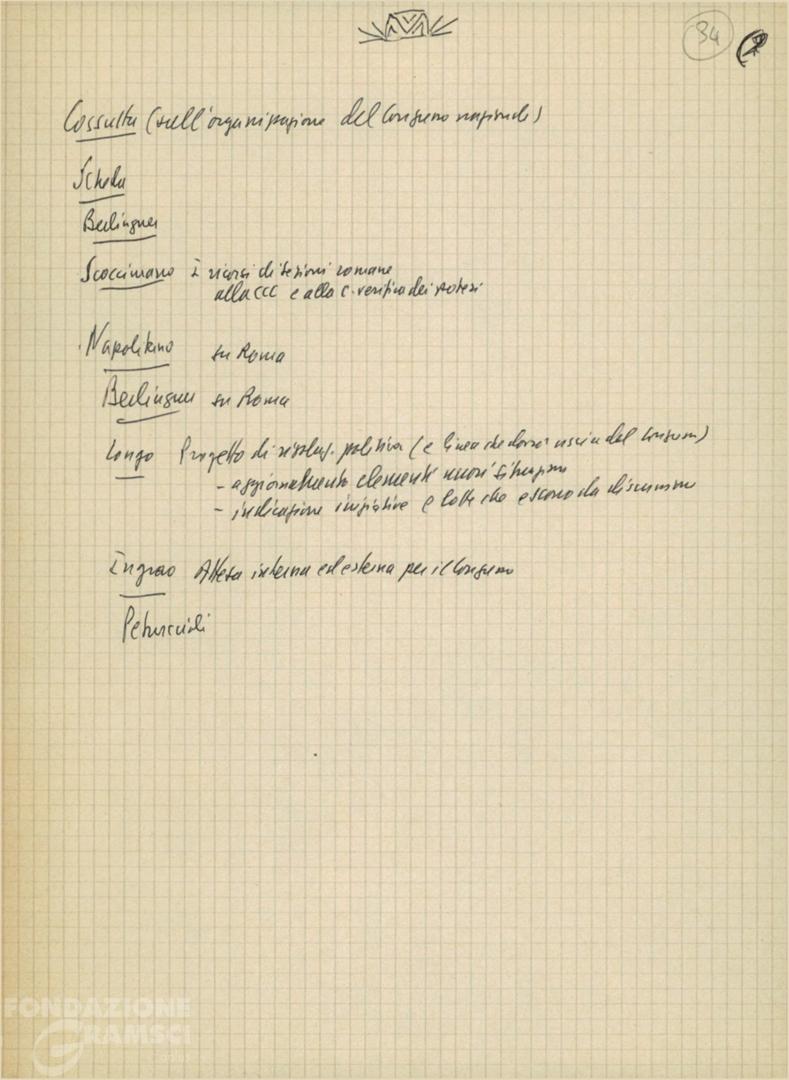 34
Cossutta (sull'organizzazione del Congresso nazionale)
Scheda
Berlinguer
Scoccimarro I ricorsi di sezioni romane
alla CCC e alla C. verifica dei poteri
Napolitano su Roma
Berlinguer su Roma
Longo Progetto di risoluz. politica (e linea che dovrà uscire dal Congresso)
- aggiornamento elementi nuovi situazione
- indicazione iniziative e lotte che escono da discussione
Ingrao Attesa interna ed esterna per il Congresso
Petruccioli
FONDAZIONE
GRAMSCI